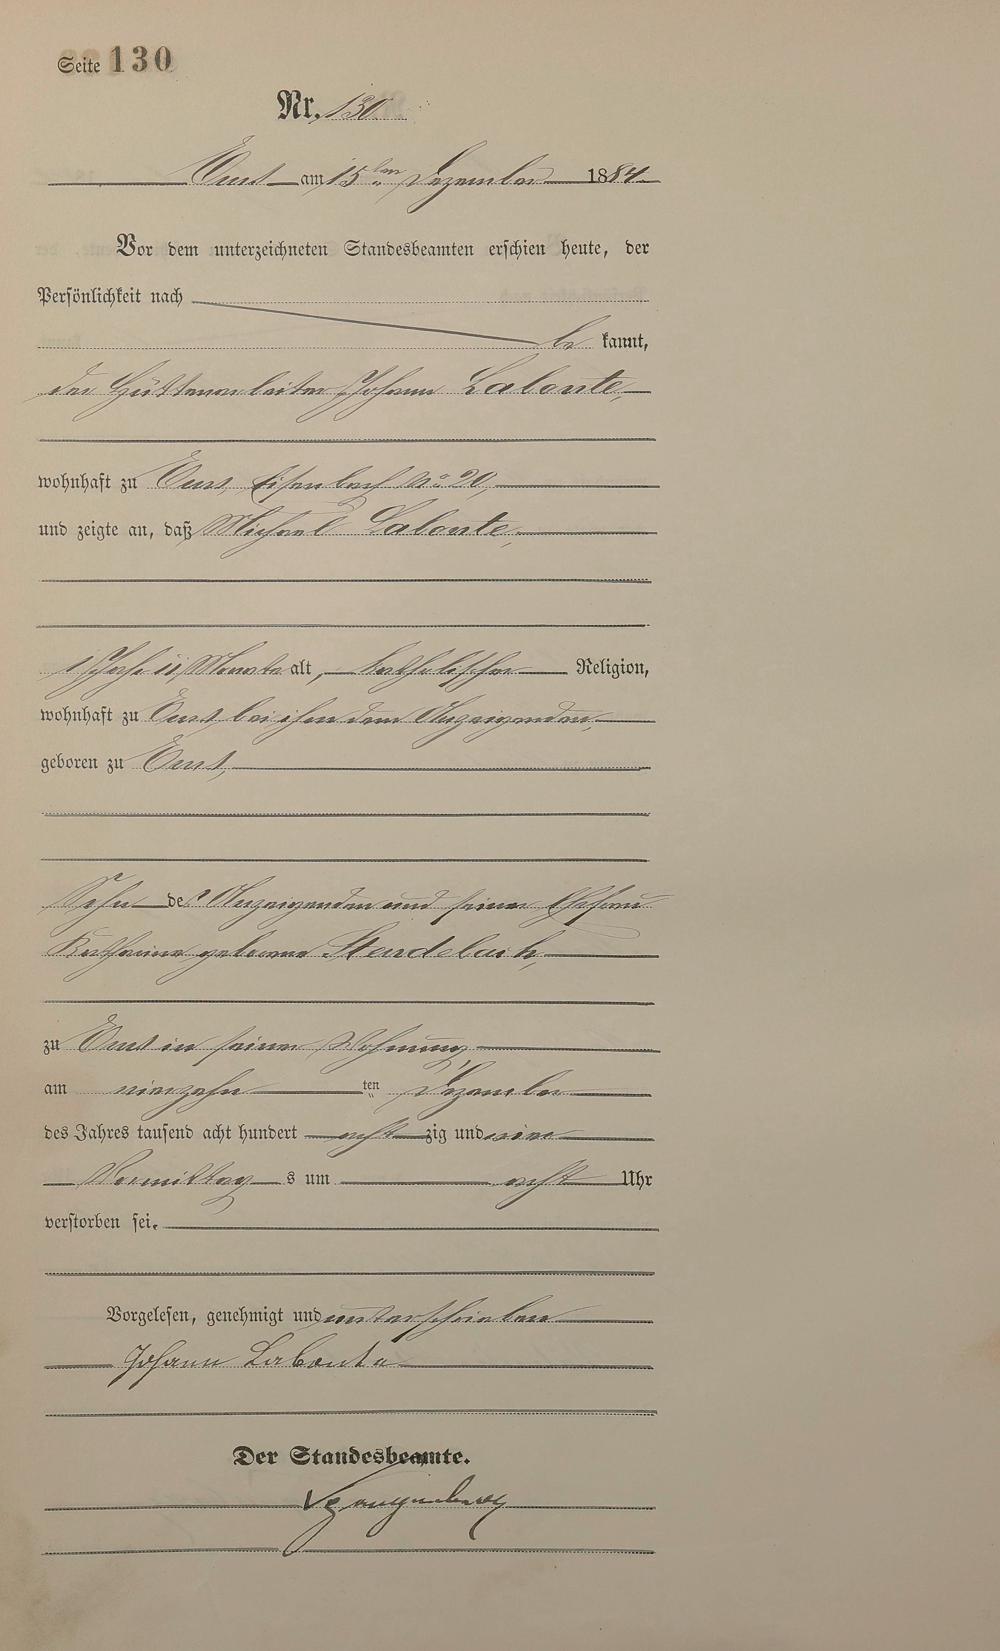 Seite 130
Nr. 130
Ems am 15ten Dezember 1884
Vor dem unterzeichneten Standesbeamten erschien heute, der
Persönlichkeit nach
be kannt,
der Hüttenarbeiter Johann Labonte,
wohnhaft zu Ems, Eisenbach No 20,
und zeigte an, daß Michael Labonte,
1 Jahr 11 Monate alt, katholischer Religion,
wohnhaft zu Ems bei ihm dem Anzeigenden,
geboren zu Ems,
Sohn des Anzeigenden und seiner Ehefrau
Katharina geborene
zu Ems in seiner Wohnung,
am vierzehn ten Dezember
des Jahres tausend acht hundert acht zig und vier
Vormittag s um acht Uhr
verstorben sei.
Vorgelesen, genehmigt und unterschrieben
Johann Labonte
Der Standesbeamte.